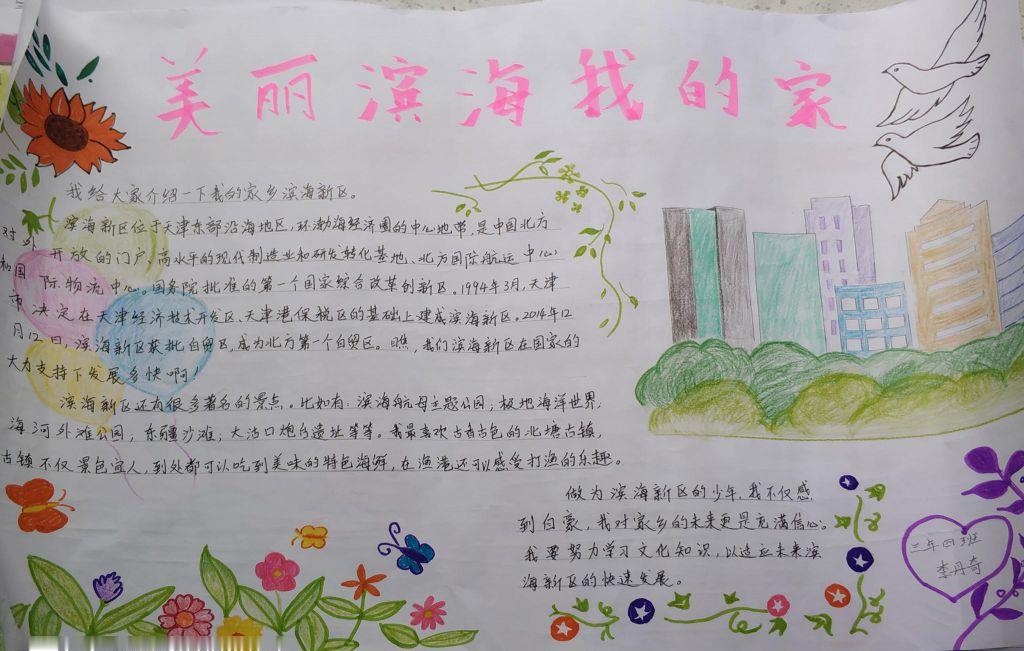 美丽滨海我的家
我给大家介绍一下我的家乡滨海新区。
滨海新区位于天津东部沿海地区,环渤海经济圈的中心地带,是中国北方
对外开放的门户、高水平的现代制造业和研发转化基地、北方国际航运中心
和国际物流中心。国务院批准的第一个国家综合改革创新区。1994年3月,天津
市决定在天津经济技术开发区、天津港保税区的基础上建成滨海新区。2014年12
月12日,滨海新区获批自贸区,成为北方第一个自贸区。瞧,我们滨海新区在国家的
大力支持下发展多快啊!
滨海新区还有很多著名的景点。比如有:滨海航母主题公园;极地海洋世界,
海河外滩公园;东疆沙滩;大沽口炮台遗址等等。我最喜欢古香古色的北塘古镇,
古镇不仅景色宜人,到处都可以吃到美味的特色海鲜,在渔港还可以感受打渔的乐趣。
做为滨海新区的少年,我不仅感
到自豪,我对家乡的未来更是充满信心。
我要努力学习文化知识,以适应未来滨
海新区的快速发展。
三年四班
李丹奇